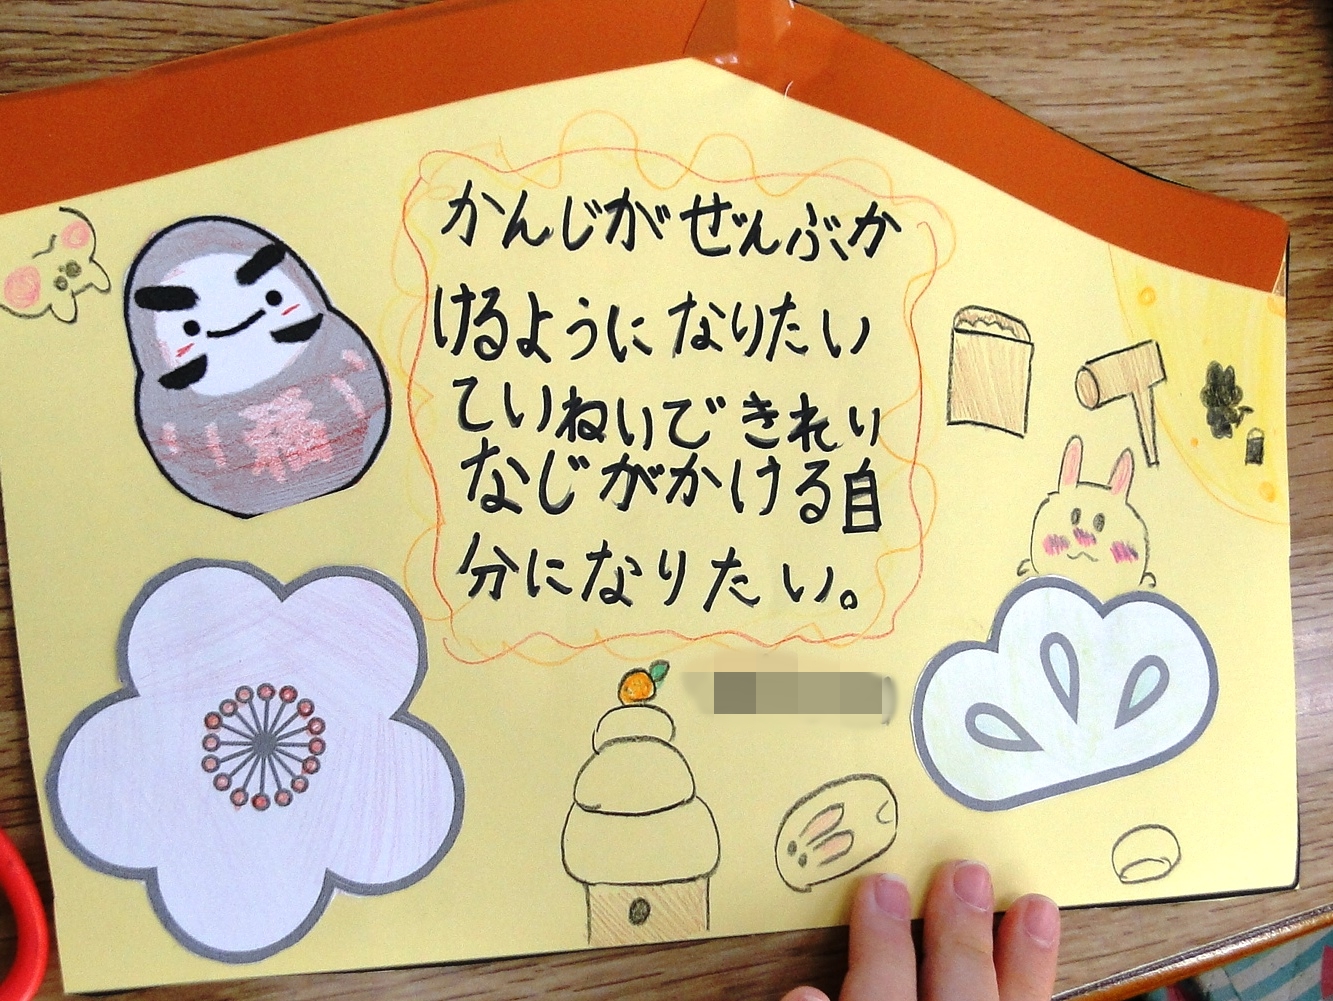 かんじがぜんぶか
けるようになりたい
ていねいできれい
なじがかける自
分になりたい。
福